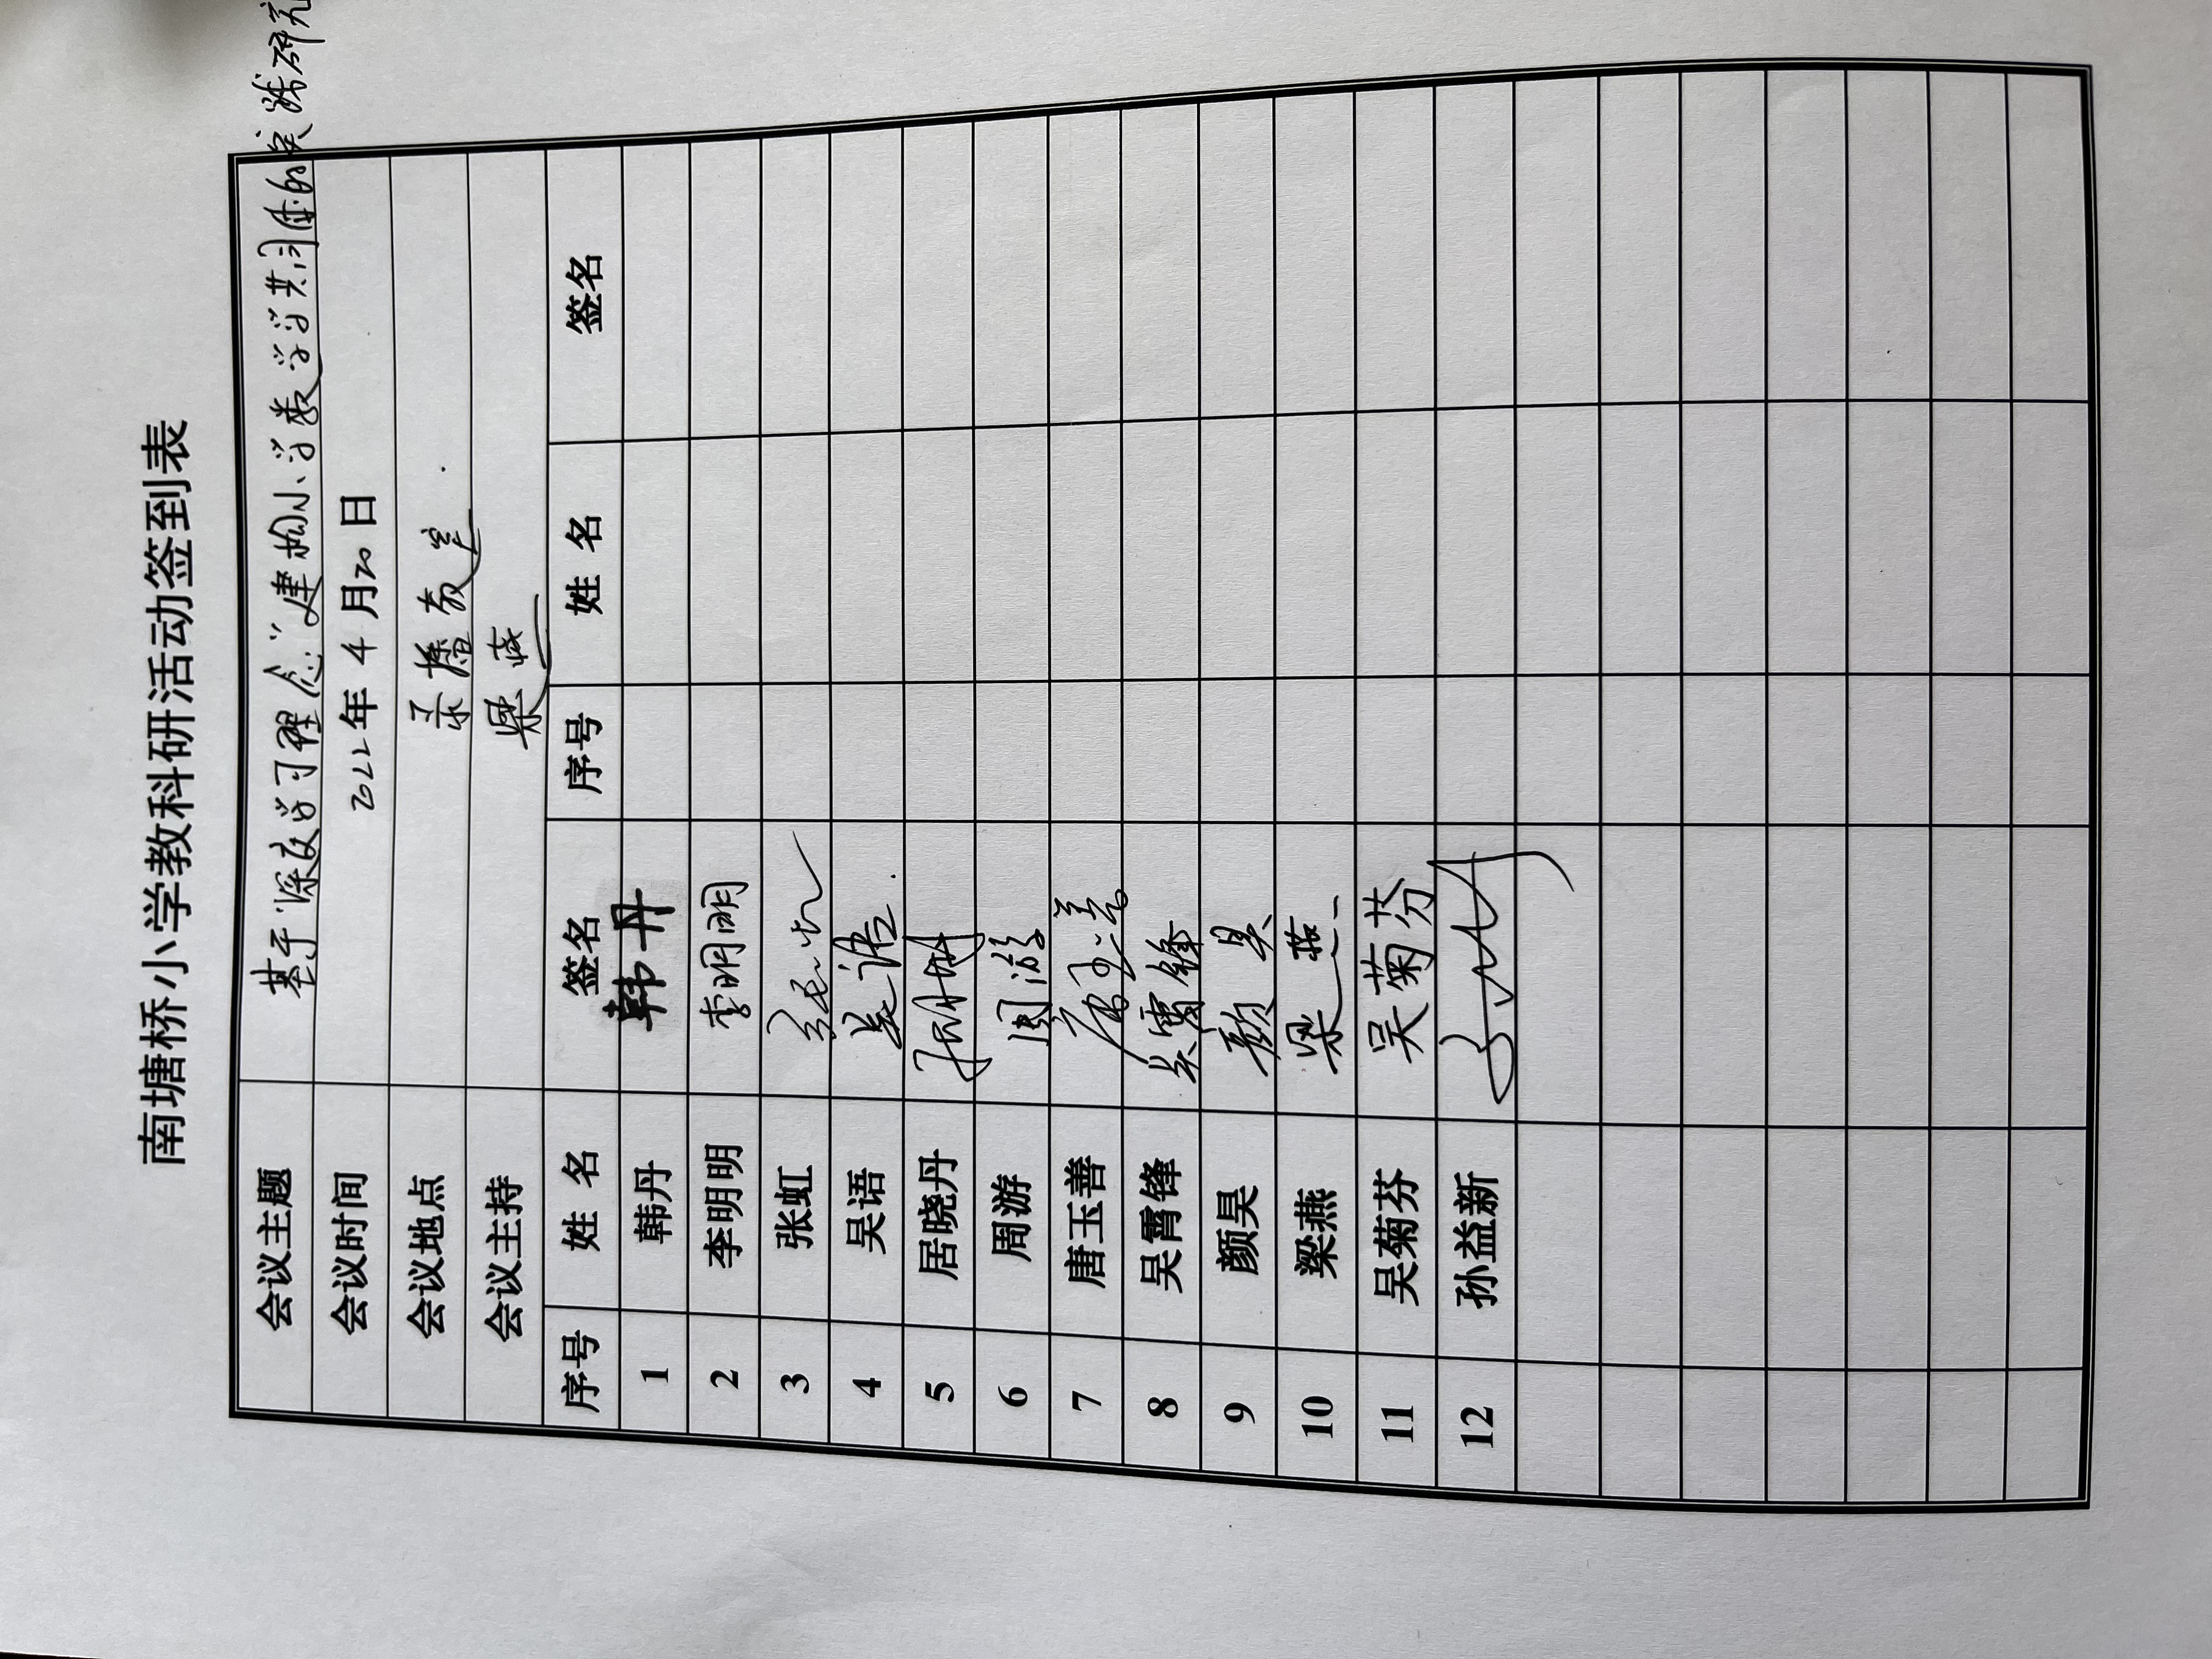 南塘桥小学教科研活动签到表
会议主题 基于"深度学习理念"建构小学数学学习共同体的实践研究
会议时间 2022年4月20日
会议地点 录播教室
会议主持 梁燕
序号 姓 名 签名 序号 姓 名 签名
1 韩丹 韩丹
2 李明明 李明明
3 张虹 张虹
4 吴语 吴语
5 居晓丹
6 周游 周游
7 唐玉善 唐玉善
8 吴霄锋 吴霄锋
9 颜昊 颜昊
10 梁燕 梁燕
11 吴菊芬 吴菊芬
12 孙益新